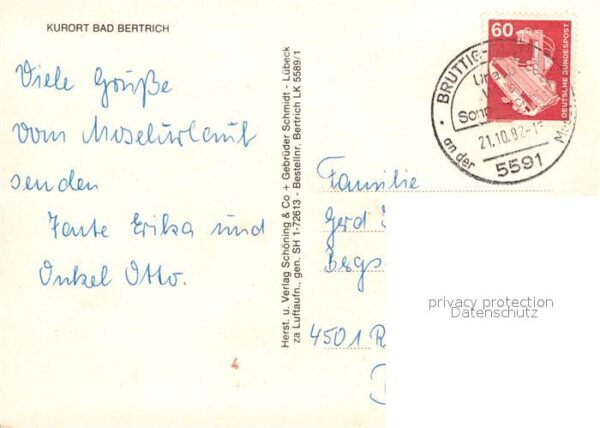 KURORT BAD BERTRICH
Viele Grüße
vom Moselurlaub
senden
Tante Erika und
Onkel Otto.
4
Herst. u. Verlag Schöning & Co + Gebrüder Schmidt - Lübeck
za Luftaufn., gen. SH 1-72613 - Bestellnr. Bertrich LK 5589/1
60
DEUTSCHE BUNDESPOST
BRUTTIG
21.10.82
an der
5591
Familie
Gerd
Bergs
4501 R
privacy protection
Datenschutz